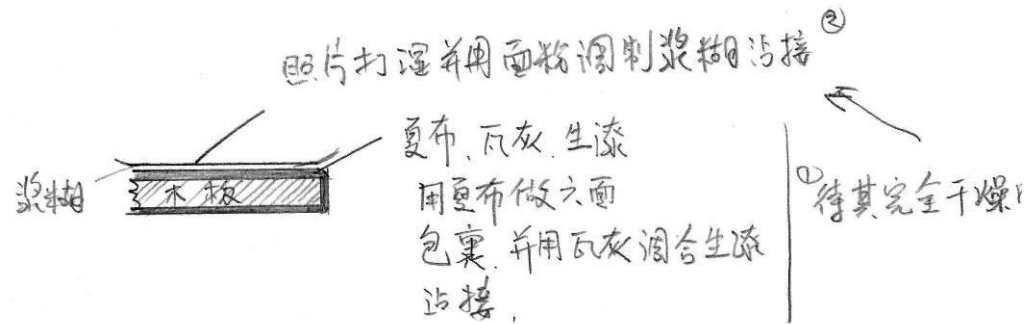 照片打湿并用面粉调制浆糊沾接②
夏布、瓦灰、生漆
用夏布做六面
包裹.并用瓦灰调合生漆
沾接.
浆糊
木板
①待其完全干燥